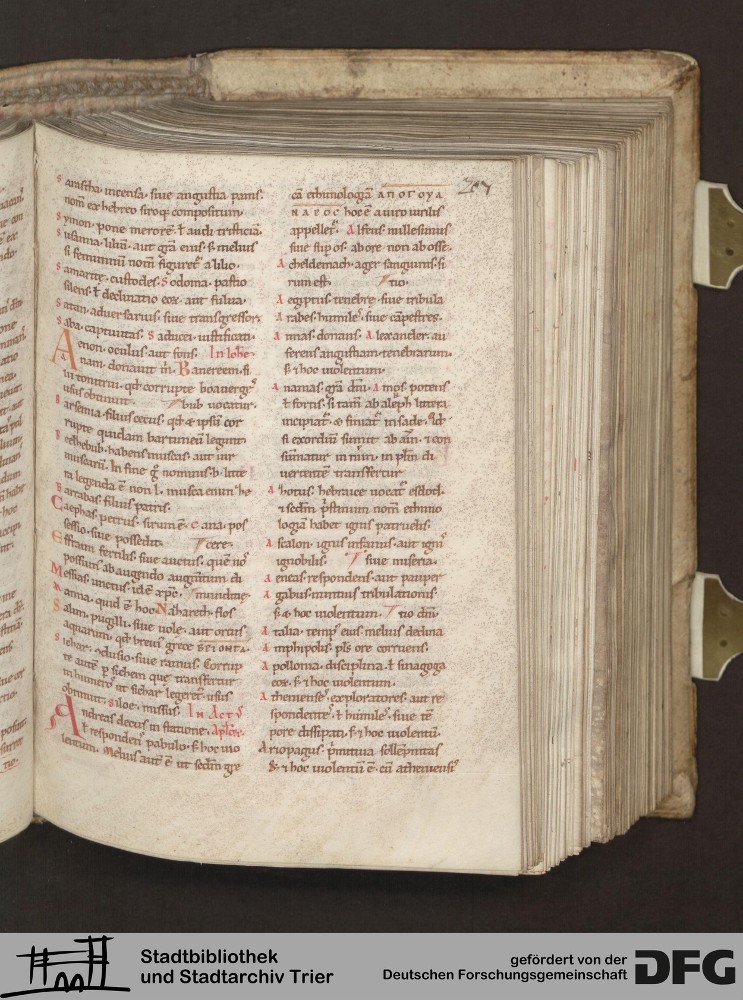 Sarastha. incensa. siue angustia panis.
nom̅ ex hebreo siroq; compositum.
Symon. pone merorē. ł audi tristiciā.
Susanna. liliū. aut gr̅a eius. s; melius
si femininū nom̅ figuret᷑ a lilio.
Samarite. custodes. Sodoma. pastio
silens. ł declinatio eoꝝ. aut fulua.
Satan. aduersarius. siue transgressor.
Saba. captiuitas. Saducei. iustificati.
Aenon. oculus aut fons. In Iohe
nani. donauit m̅. Banereem. fi
lii tonitrui. qd̅ corrupte boanerges
usus obtinuit. bub uocatur.
Barsemia. filius cecus. qd̅ & ipsū cor
rupte quidam bartimeū legunt.
Beelzebub. habens muscas aut uir
muscarū. In fine g̊ nominis. b. litte
ra legenda ē non l. musca enim he
Barrabas. filius patris.
Caephas. petrus. sirum ē. Cana. pos
sessio. siue possedit. cere.
Effraim fertilis. siue auctus. quē nos
possumus ab augendo augentium di
Messias. unctus. id ē xp̅c. munditie
Manna. quid ē hoc. Nazareth. flos
Salim. pugilli. siue uole. aut ortus
aquarum. qd̅ breuius grece ΒΡΙΟΝΤΑ.
Sichar. conclusio. siue ramus. Corrup
te autē p sichem que transfertur
in humeros ut sichar legeret᷑ usus
obtinuit. Siloe. missus. In Actᵘ
Andreas decus in statione. Aplo̅ꝝ.
ł respondens pabulo. s; hoc uio
lentum. Melius autē ē ut secdm̅ gre
cā ethimologiā ΑΠΟΓΟΥΑ
ΝΑΡΟС hoc ē a uiro uirilis
appellet᷑. Alfeus. millesimus
siue sup os. ab ore. non ab osse.
Acheldemach. ager sanguinis. si
rum est. tio.
Aegiptus. tenebre. siue tribula
Arabes. humiles. siue cāpestres.
Annas. donans. Alexander. au
ferens angustiam tenebrarum.
s; & hoc uiolentum.
Ananias. gr̅a dn̅i. Amos. potens
ł fortis. si tam̅ ab aleph littera
incipiat᷑. & finiat᷑ in sade. Qd̅
si exordiū sumit ab ain. & con
summatur in
uertentē transfertur
Azotus. hebraice uocat᷑ esdod.
& secdm̅ pristinum nom̅ ethimo
logiā habet ignis patruelis.
Ascalon. ignis infamis. aut ignis
ignobilis. siue miseria.
Aeneas. respondens. aut pauper
Agabus. nuntius tribulationis.
s; & hoc uiolentum. tio dn̅i
Italia. temp eius. melius declina
Amphipolis. pl̅s ore corruens.
Apollonia. disciplina. ł sinagoga
eoꝝ. s; & hoc uiolentum.
Athenienses. exploratores. aut re
spondentes. ł humiles. siue tē
pore dissipati. s; & hoc uiolentū.
Ariopagus. primitiua sollempnitas
s; & hoc uiolentū ē. cū atheniensis
Stadtbibliothek
und Stadtarchiv Trier
gefördert von der
Deutschen Forschungsgemeinschaft
DFG